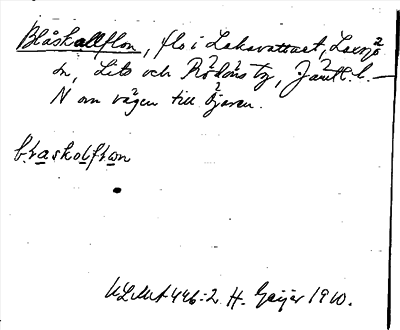 Blåskallflon, flo i Lakavattnet, Laxsjö
sn, Lits och Rödöns tg, Jämtl. l. —
N om vägen till
blaskolflon
ULMA 446:2. H. Geijer 1910.